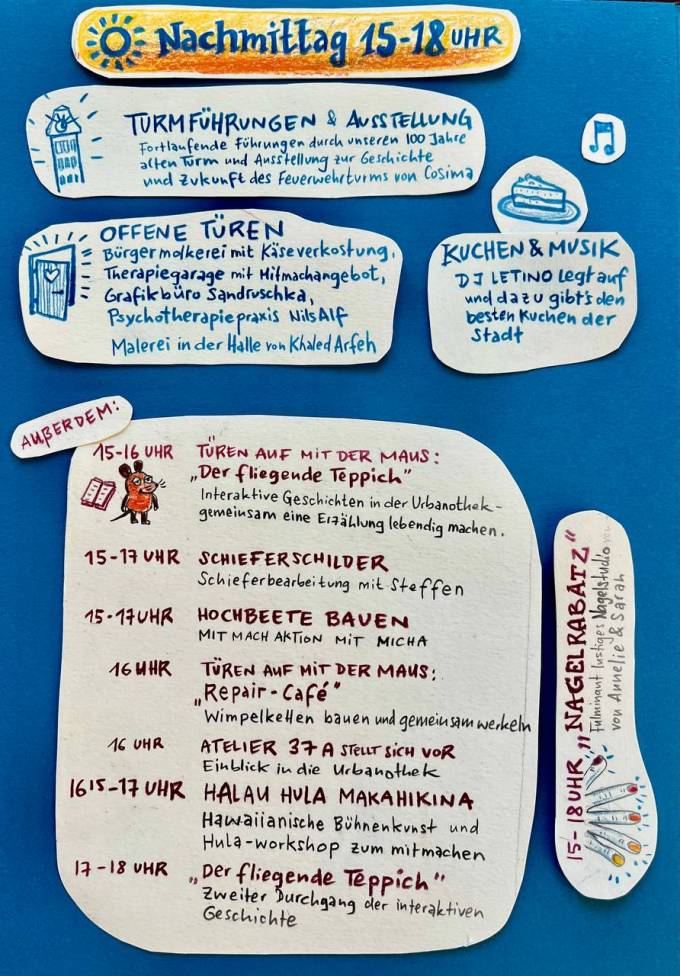 Nachmittag 15-18 UHR
TURMFÜHRUNGEN & AUSSTELLUNG
Fortlaufende Führungen durch unseren 100 Jahre
alten Turm und Ausstellung zur Geschichte
und Zukunft des Feuerwehrturms von Cosima
OFFENE TÜREN
Bürgermolkerei mit Käseverkostung,
Therapiegarage mit Mitmachangebot,
Grafikbüro Sandruschka,
Psychotherapiepraxis Nils Alf
Malerei in der Halle von Khaled Arfeh
KUCHEN & MUSIK
DJ LETINO legt auf
und dazu gibt's den
besten Kuchen der
Stadt
AUẞERDEM:
15-16 UHR TÜREN AUF MIT DER MAUS:
„Der fliegende Teppich"
Interaktive Geschichten in der Urbanothek-
gemeinsam eine Erzählung lebendig machen.
15-17 UHR SCHIEFERSCHILDER
Schieferbearbeitung mit Steffen
15-17 UHR HOCHBEETE BAUEN
MITMACH AKTION MIT MICHA
16 UHR TÜREN AUF MIT DER MAUS:
„Repair-Café"
Wimpelketten bauen und gemeinsam werkeln
16 UHR ATELIER 37A STELLT SICH VOR
Einblick in die Urbanothek
16¹⁵-17 UHR HALAU HULA MAKAHIKINA
Hawaiianische Bühnenkunst und
Hula-workshop zum mitmachen
17-18 UHR „Der fliegende Teppich"
Zweiter Durchgang der interaktiven
Geschichte
15-18 UHR „NAGELRABATZ"
Fulminant lustiges Nagelstudio von
von Annelie & Sarah